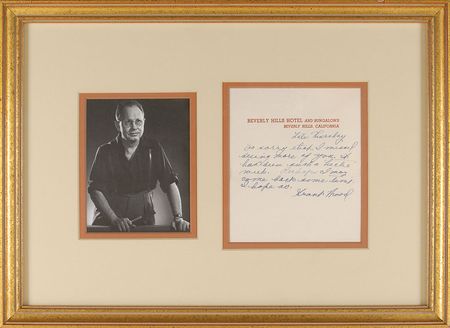 BEVERLY HILLS HOTEL AND BUNGALOWS
BEVERLY HILLS, CALIFORNIA
Late Thursday
So sorry that I missed
seeing more of you. It
has been such a hectic
week. Perhaps I may
come back some time,
I hope so.
Grant Wood